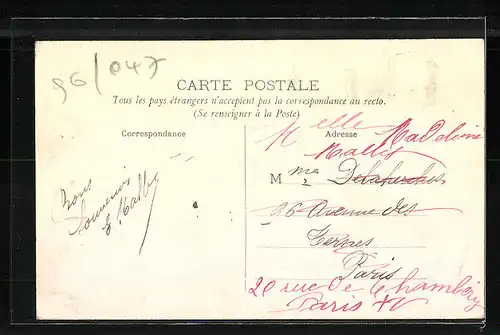 96/047
CARTE POSTALE
Tous les pays étrangers n'acceptent pas la correspondance au recto.
(Se renseigner à la Poste)
Correspondance
Adresse
Bons
Souvenirs
Melle Madeleine
Mallet
M me
96 Avenue des
Ternes
Paris
20 rue de Chambéry
Paris XV